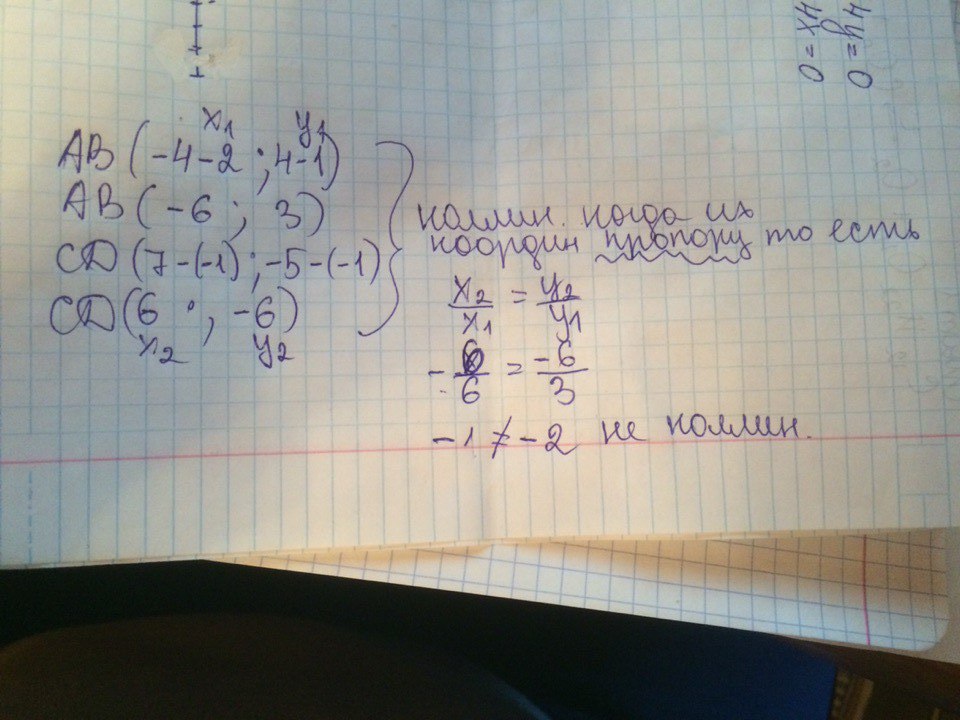 x₁ y₁
AB (-4-2 ; 4-1)
AB (-6 ; 3)
CD (7-(-1) ; -5-(-1)
CD (6 ; -6)
x₂ y₂
коллин. когда их
координ пропорц то есть
x₂/x₁ = y₂/y₁
-6/6 = -6/3
-1 ≠ -2 не коллин.
0=x4
0=y4